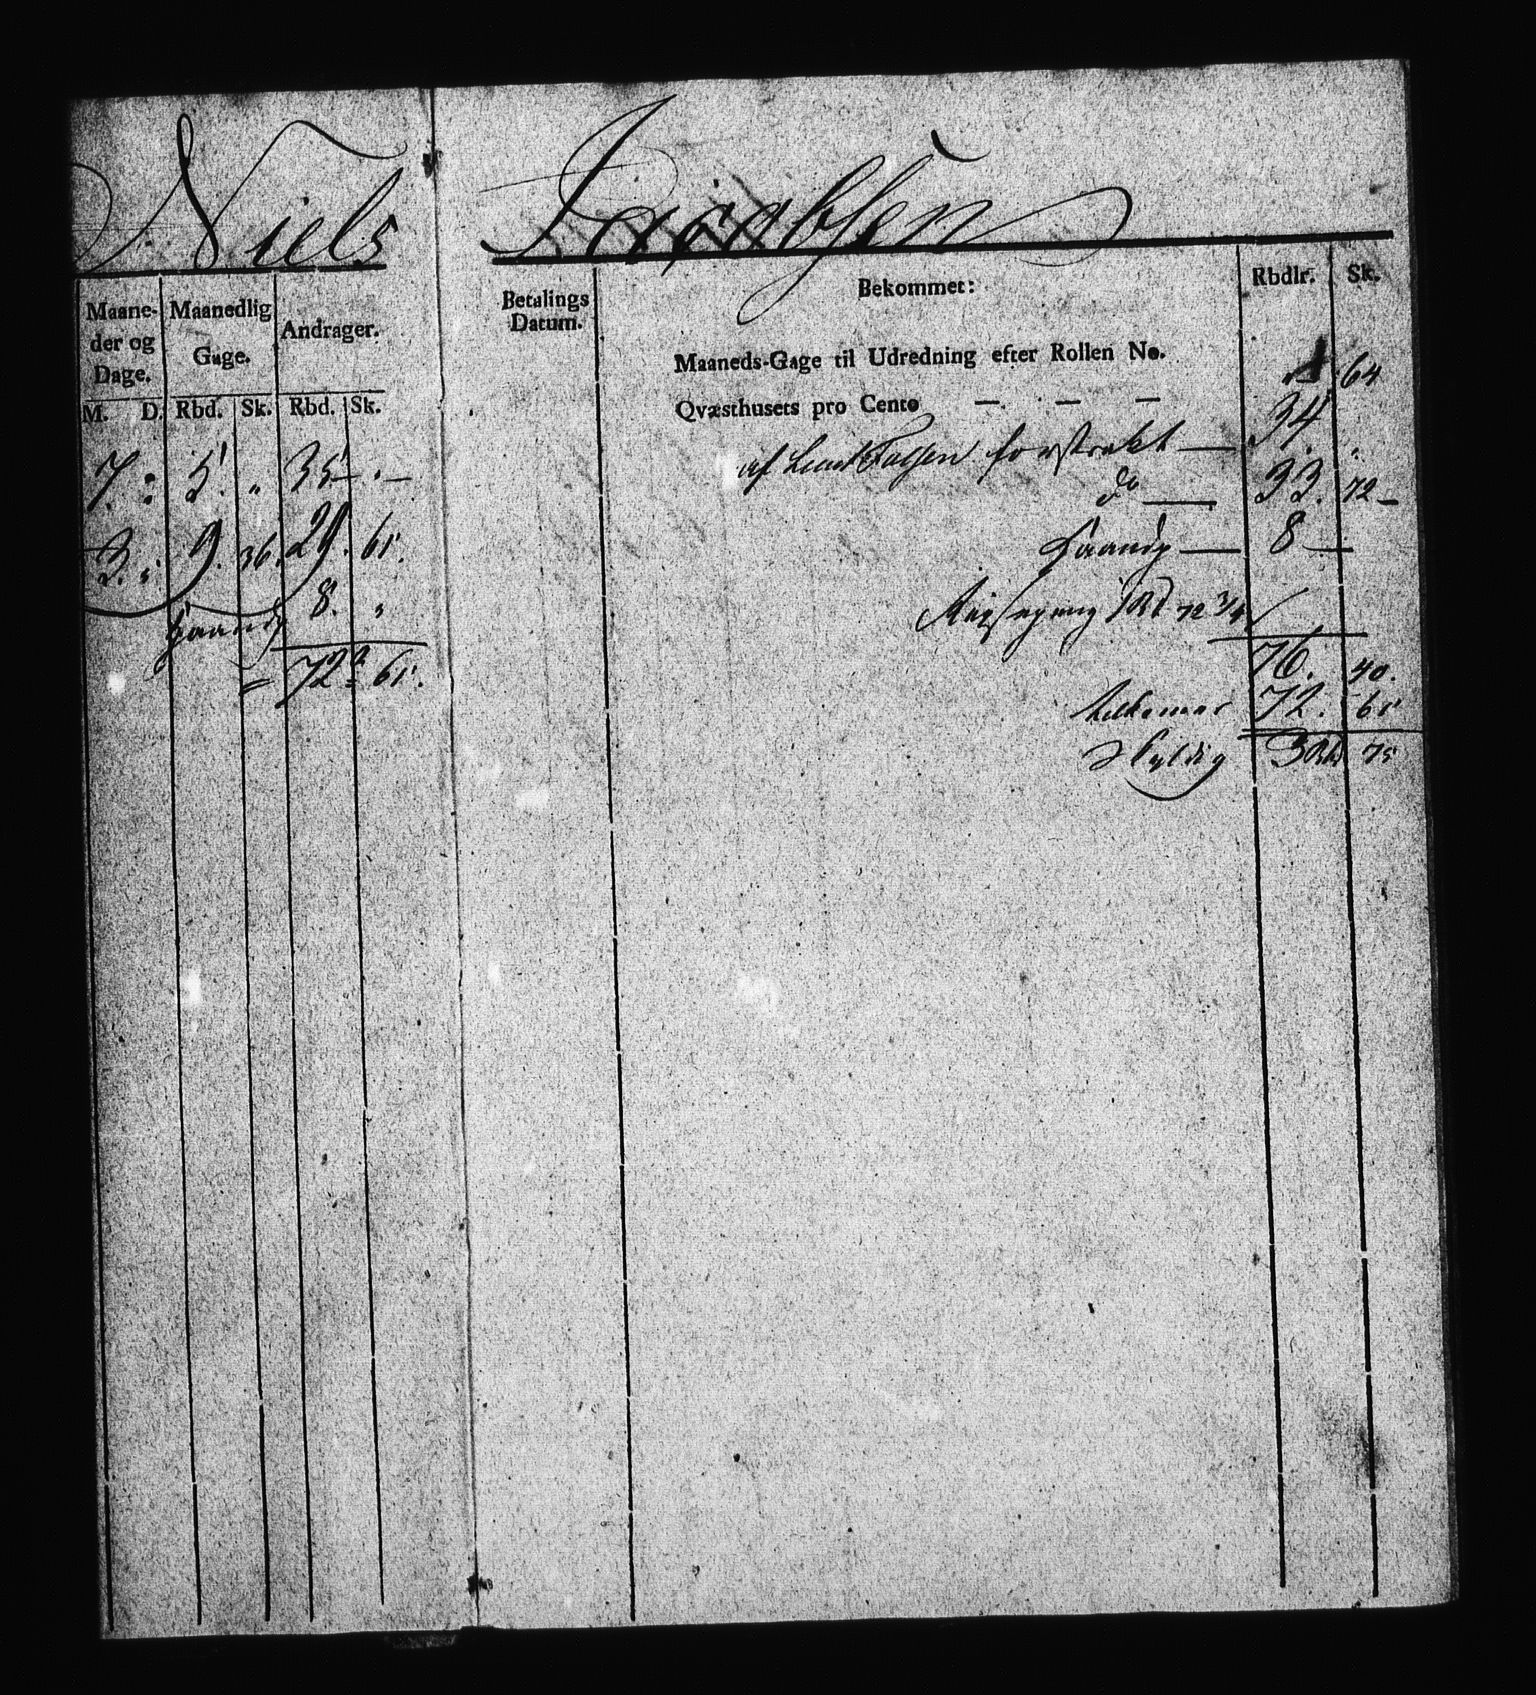 Niels Jacobsen
Maane-
der og
Dage.
Maanedlig
Gage.
Andrager.
M. D. Rbd. Sk. Rbd. Sk.
7. : 5. " 35 - " -
3. " 9. 36. 29. 61.
Haandp 8. "
= 72 = 61.
Betalings
Datum.
Bekommet:
Rbdlr. Sk.
Maaneds-Gage til Udredning efter Rollen No.
Qvæsthusets pro Cento — — — 64
af forstrakt — 34 "
do — 33. 72 -
Haandp — 8 —
72 3/4
76. 40.
tilkommer 72. 61
Skyldig 3 Rbd 75